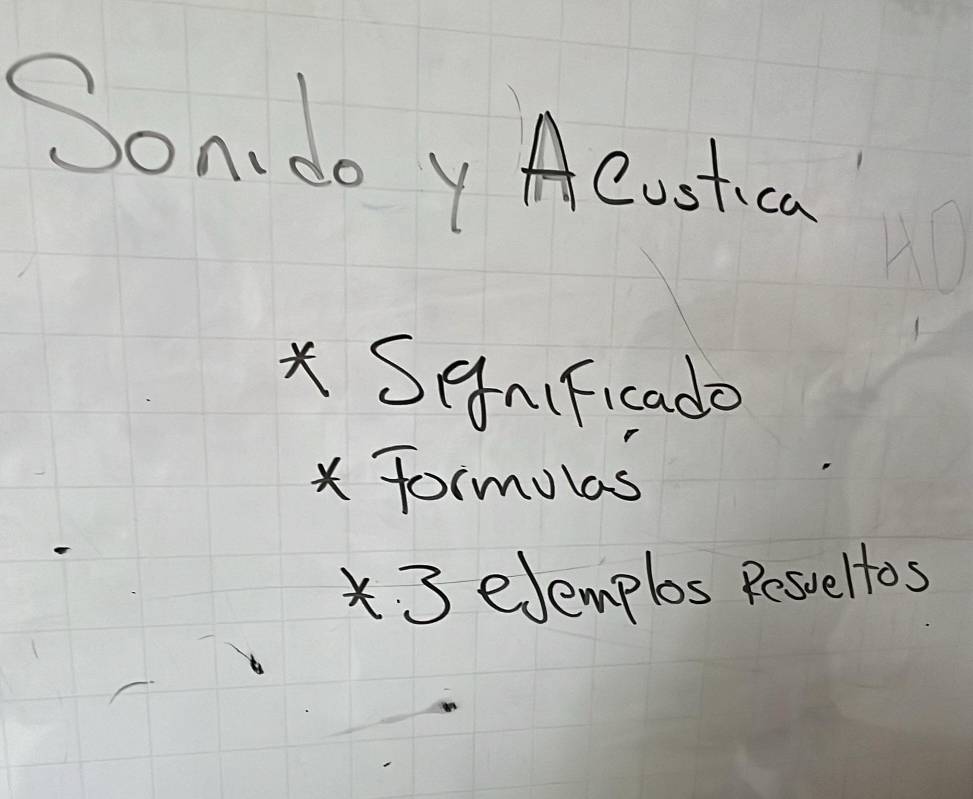 Sonido y Acustica
* Significado
* Formulas
* 3 ejemplos Resueltos